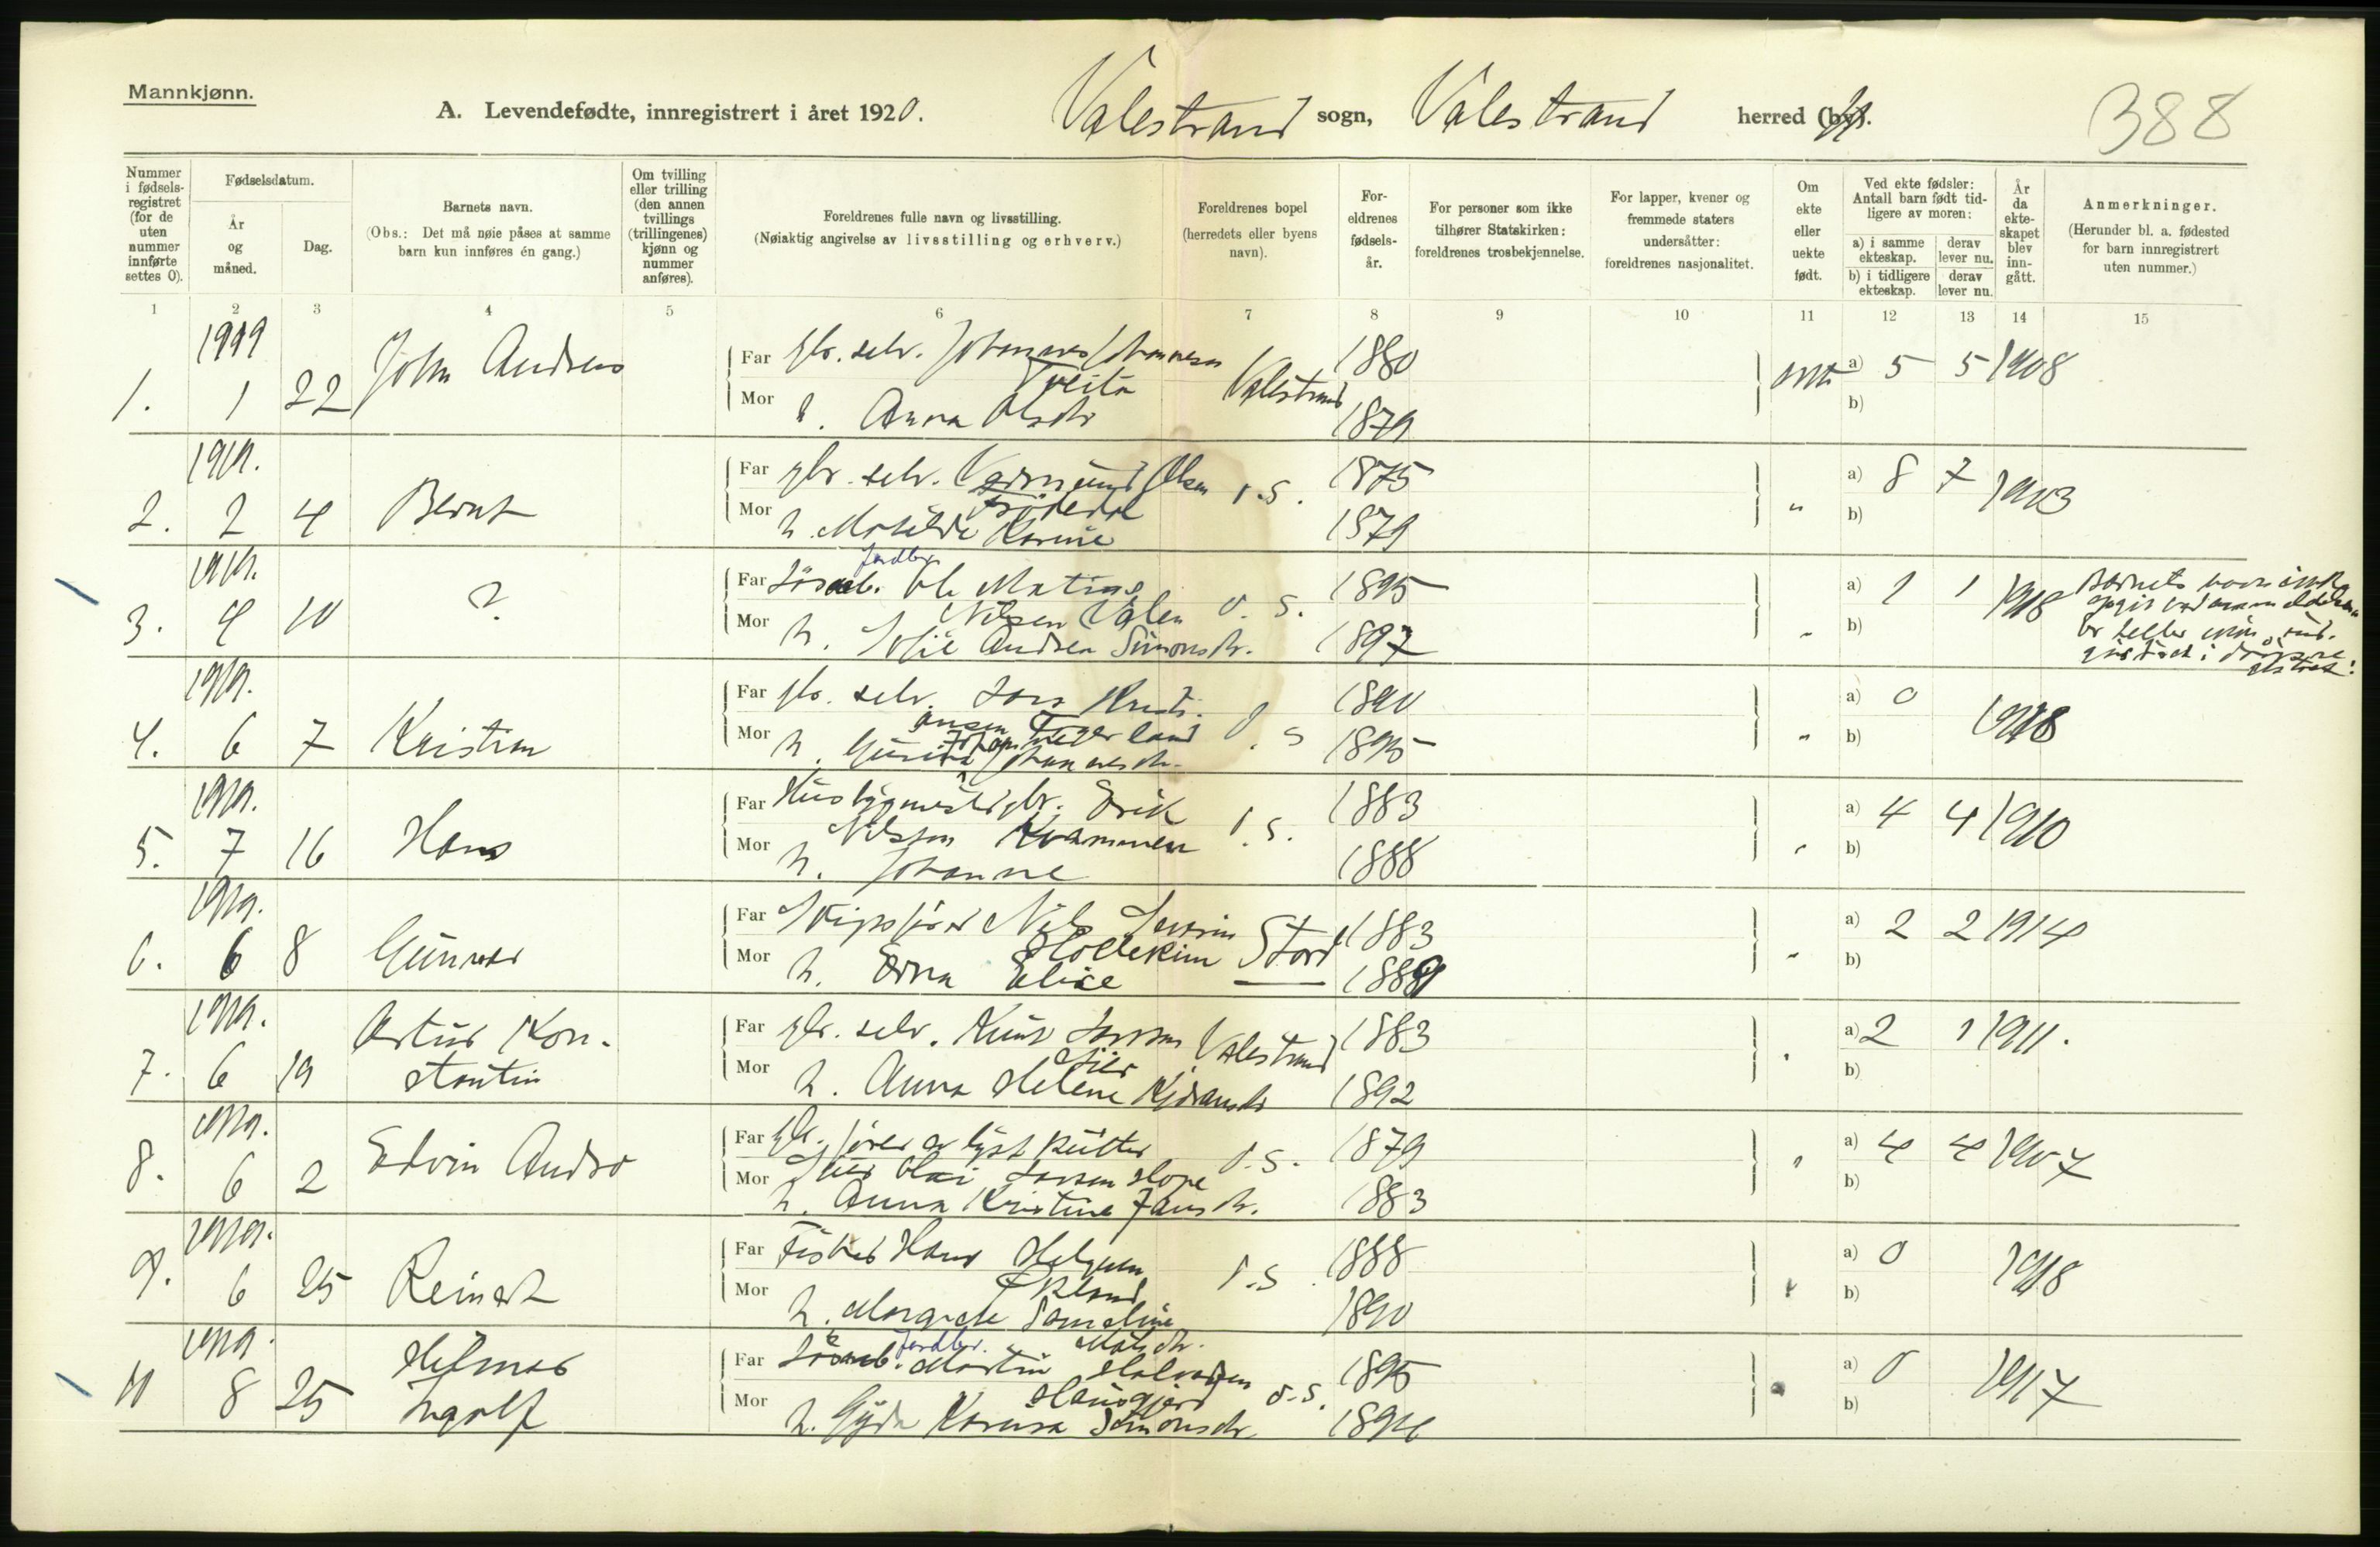 Mannkjønn.
A. Levendefødte, innregistrert i året 1920. Valestrand sogn, Valestrand herred (by).
388
Nummer i fødselsregistret (for de uten nummer innførte settes 0).
Fødselsdatum.
År og måned.
Dag.
Barnets navn.
(Obs.: Det må nøie påses at samme barn kun innføres én gang.)
Om tvilling eller trilling (den annen tvillings (trillingenes) kjønn og nummer anføres).
Foreldrenes fulle navn og livsstilling.
(Nøiaktig angivelse av livsstilling og erhverv.)
Foreldrenes bopel (herredets eller byens navn).
Foreldrenes fødselsår.
For personer som ikke tilhører Statskirken: foreldrenes trosbekjennelse.
For lapper, kvener og fremmede staters undersåtter: foreldrenes nasjonalitet.
Om ekte eller uekte født.
Ved ekte fødsler: Antall barn født tidligere av moren:
a) i samme ekteskap.
derav lever nu.
b) i tidligere ekteskap.
derav lever nu.
År da ekteskapet blev inngått.
Anmerkninger.
(Herunder bl. a. fødested for barn innregistrert uten nummer.)
1 2 3 4 5 6 7 8 9 10 11 12 13 14 15
1919
1. 1 22 John Andreas
Far gbr. selv. Johannes Johannesen
Tveita Valestrand 1880
Mor h. Anna Olsdtr 1879
a) 5 5 1908
b)
1919.
2. 2 4 Bernt
Far gbr. selv. Olsen d.S. 1875
Mor h. Matilde Karine 1879
" a) 8 7 1903
b)
1919.
3. 4 10 ?
Far jordbr. Ole Matias
Nilsen Valen d. S. 1895
Mor h. Andrea Simonsdtr. 1897
" a) 1 1 1918
b)
Barnets navn
1919.
4. 6 7 Kristian
Far gbr. selv. Lars Kristi-
ansen d. S 1890
Mor h. Johannesdtr. 1895
" a) 0 1918
b)
1919.
5. 7 16 Hans
Far gbr. Erik
Nilsson Kvammen d.S. 1883
Mor h. Johanne 1888
" a) 4 4 1910
b)
1919.
6. 6 8 Gunnar
Far Skipsfører Nils
Stord 1883
Mor h. Erna Elise — 1889
" a) 2 2 1914
b)
1919.
7. 6 19 Artur Kon-
stantin
Far gbr. selv. Knut Larsson
Valestrand 1883
Mor h. Anna Helene 1892
" a) 2 1 1911.
b)
1919.
8. 6 2 Edvin Andro
Far gbr. fører av kutter
Larsen Hope d.S. 1879
Mor h. Anna Kristine Jansdtr. 1883
" a) 4 4 1907
b)
1919.
9. 6 25 Reinert
Far Fisker Hans Helgesen
Økland d.S. 1888
Mor h. Margrete
Matsdtr. 1890
" a) 0 1918
b)
1919.
10 8 25 Hilmar
Ingolf
Far jordbr. Martin Halvorsen
d.S. 1895
Mor h. Gyda Simonsdtr
" a) 0 1917
b)